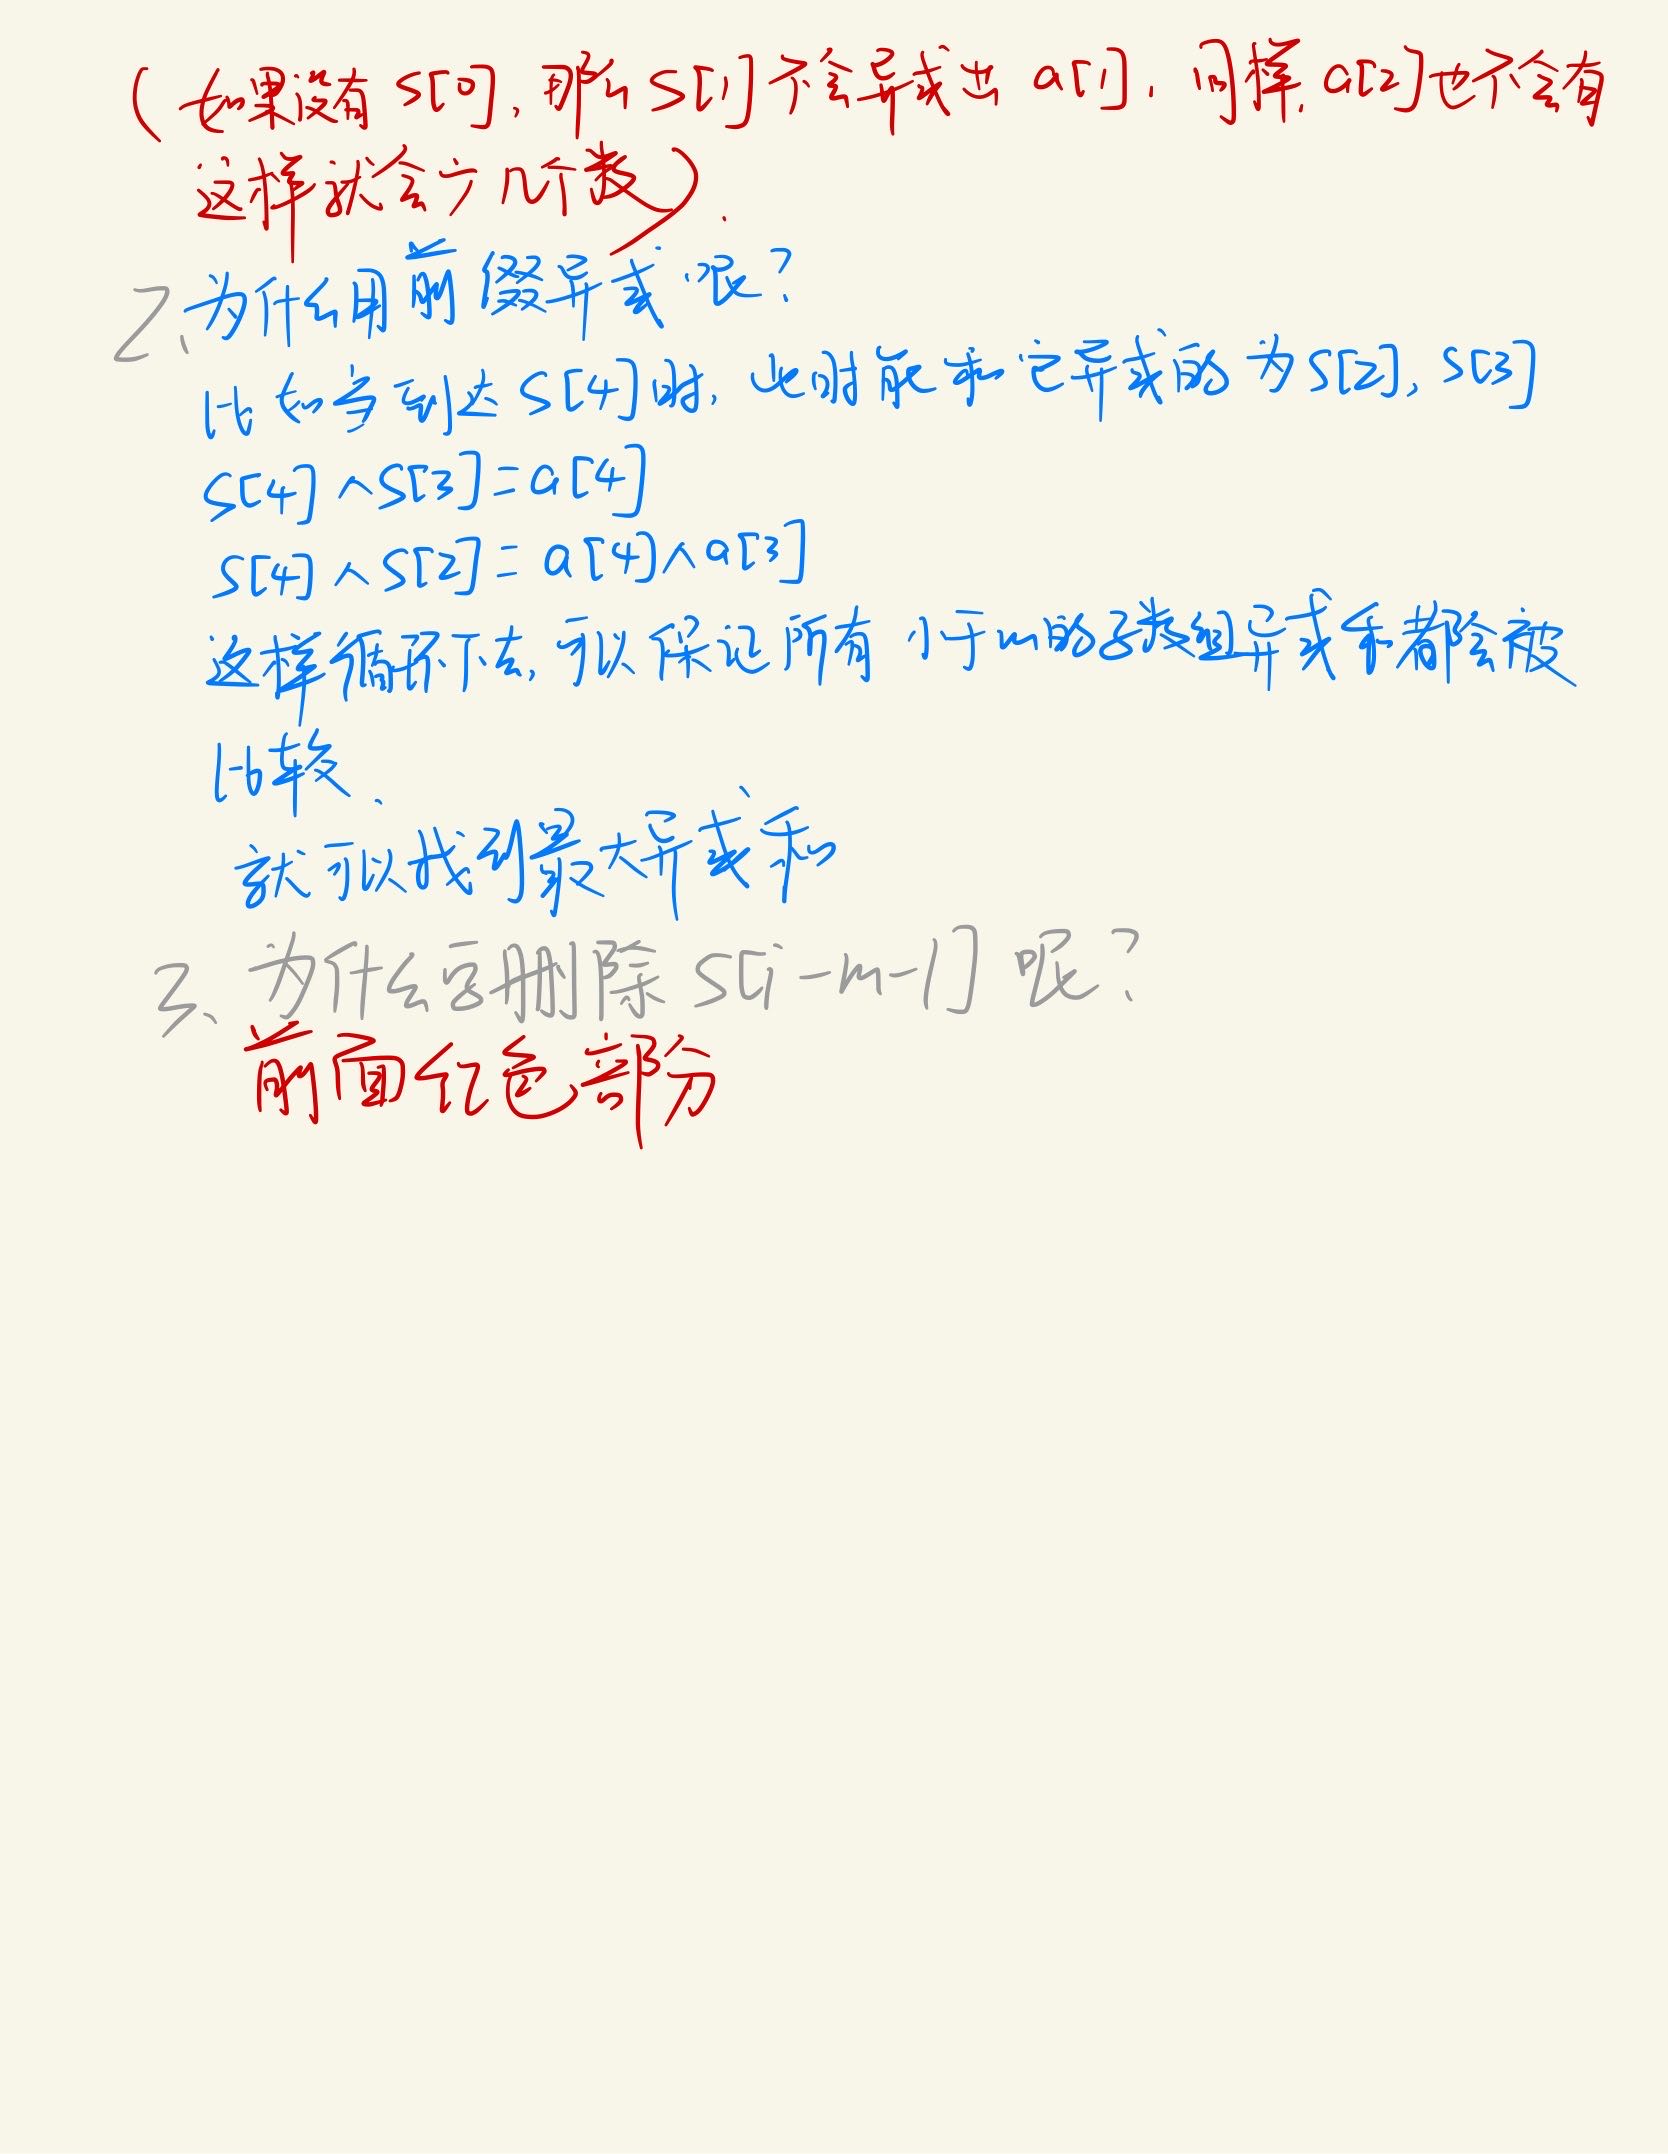 (如果没有S[0],那么S[1]不会异或出a[1],同样,a[2]也不会有
这样就会少几个数).
2、为什么用前缀异或呢?
比如当到达S[4]时,此时能和它异或的为S[2],S[3]
S[4]^S[3]=a[4]
S[4]^S[2]=a[4]^a[3]
这样循环下去,可以保证所有小于m的子数组异或和都会被
比较.
就可以找到最大异或和
3、为什么要删除S[i-m-1]呢?
前面红色部分